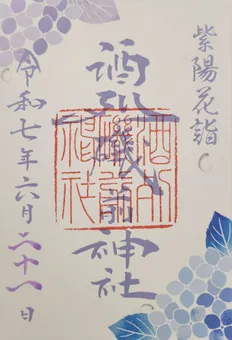 紫陽花詣
酒列磯前神社
令和七年六月二十一日
酒列
磯前
神社